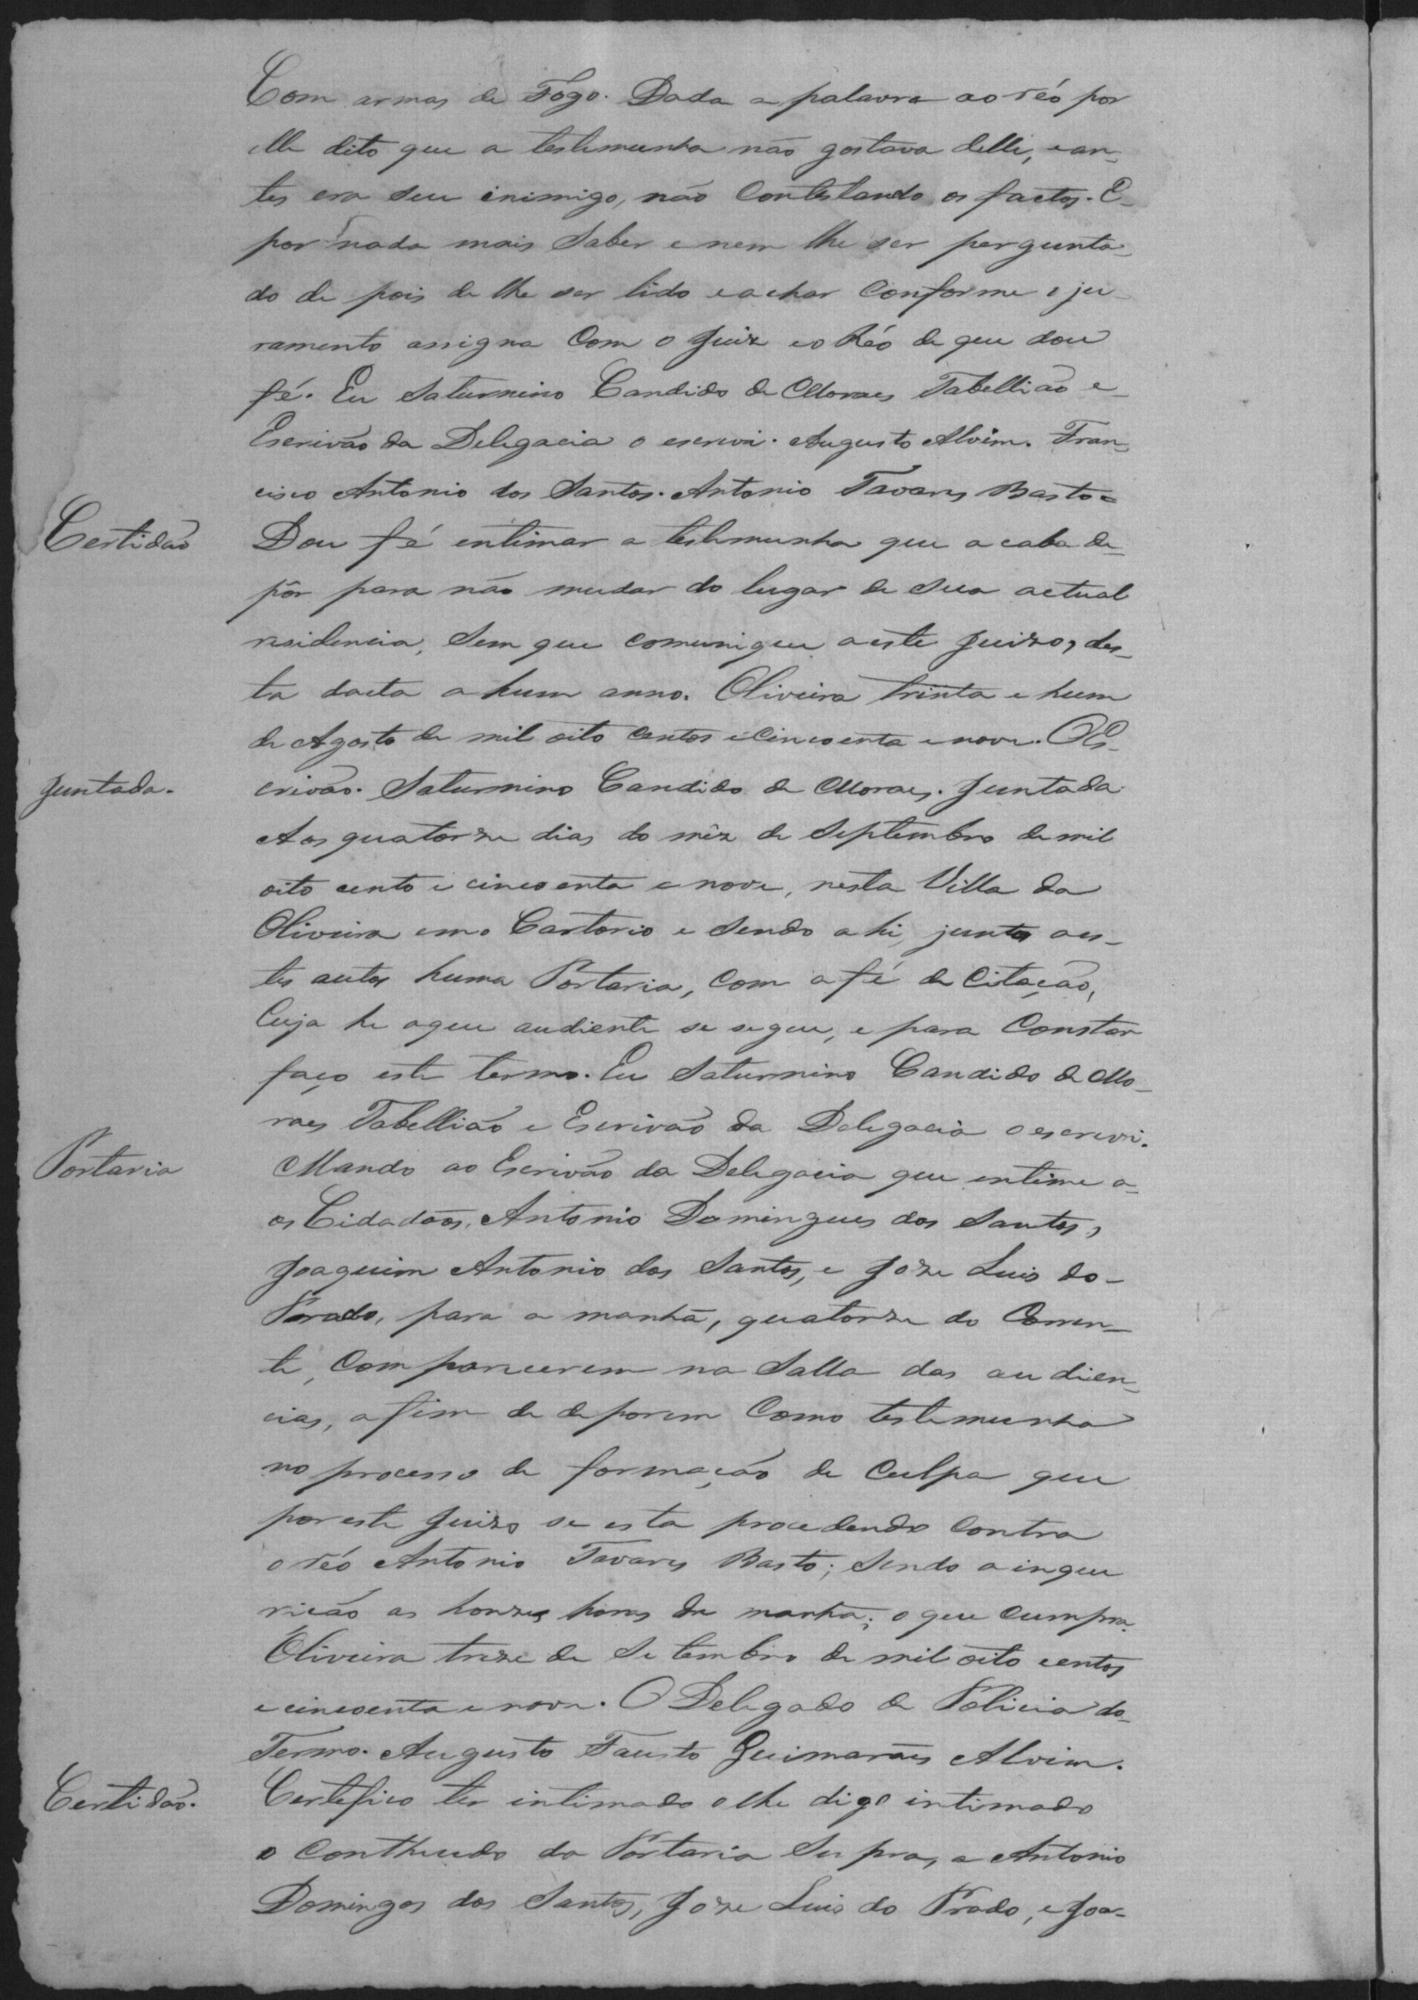 Com armas de Fogo. Dada a palavra ao réo por
elle dito que a testemunha não gostava delle, e an-
tes era seu inimigo, não Contestando os factos. E
por nada mais Saber e nem lhe ser pergunta-
do de pois de lhe ser lido e achar Conforme o ju-
ramento assigna Com o Juiz e o Réo de que dou
fé. Eu Saturnino Candido de Moraes Tabellião e
Escrivão da Delegacia o escrevi. Augusto Alvim. Fran-
cisco Antonio dos Santos. Antonio Tavares Basto=
Certidão
Dou fé entimar a testemunha que acaba de
pôr para não mudar do lugar de sua actual
residencia, Sem que comunique a este Juizo, des-
ta dacta a hum anno. Oliveira trinta e hum
de Agosto de mil oito centos e cincoenta e nove. O Es-
Juntada.
crivão. Saturnino Candido de Moraes. Juntada
Aos quatorze dias do mêz de Septembro de mil
oito cento e cincoenta e nove, nesta Villa da
Oliveira em o Cartorio e Sendo ahi, junto a es-
tes autos huma Portaria, com a fé de Citação,
Cuja he a que audiente se segue, e para Constar
faço este termo. Eu Saturnino Candido de Mo-
raes Tabellião e Escrivão da Delegacia o escrevi.
Portaria
Mando ao Escrivão da Delegacia que entime a-
os Cidadãos, Antonio Domingues dos Santos,
Joaquim Antonio dos Santos, e Joze Luis do-
Prado, para a manhã, quatorze do Corren-
te, Comparecerem na Salla das audien-
cias, a fim de deporem Como testemunha
no processo de formação de Culpa que
por este Juizo se esta procedendo Contra
o réo Antonio Tavares Basto; Sendo a inque
rição as honze horas da manhã; o que Cumpra.
Oliveira treze de Setembro de mil oito centos
e cincoenta e nove. O Delegado de Policia do-
Termo. Augusto Fausto Guimarães Alvim.
Certidão.
Certefico ter intimado o lhe digo intimado
o Conthiudo da Portaria Supra, a Antonio
Domingos dos Santos, Joze Luis do Prado, e Joa-